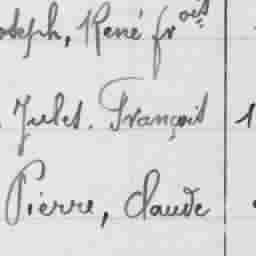 oseph, René fr^ois
Jules. François 1
Pierre, Claude